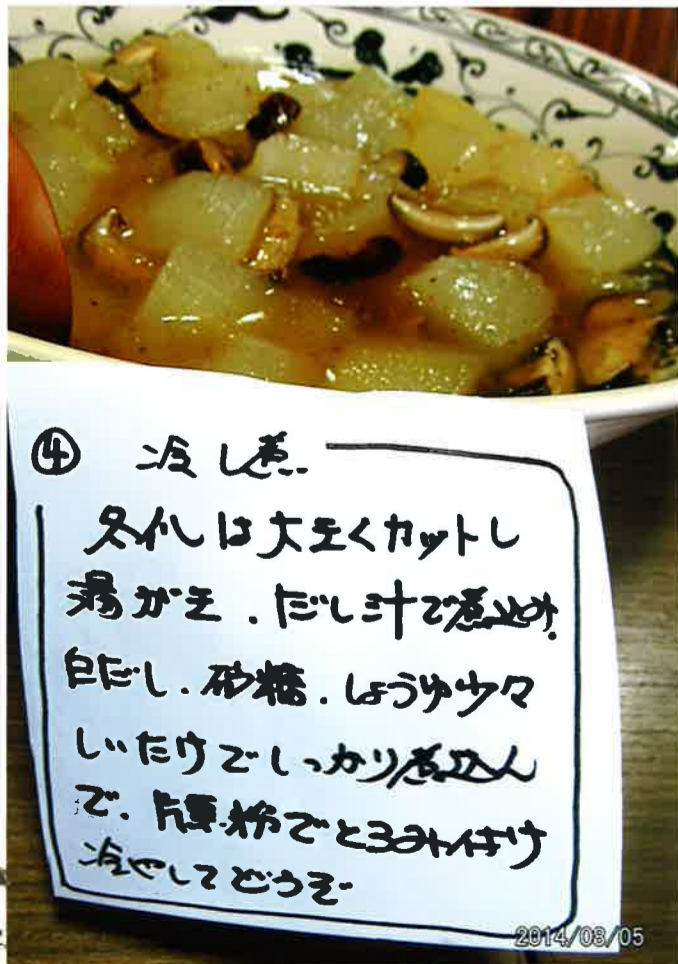 ④ 冷し煮
冬瓜は大きくカットし
湯がき、だし汁で煮込み、
白だし、砂糖、しょうゆ少々
しいたけでしっかり煮込ん
で、片栗粉でとろみ付け
冷やしてどうぞ
2014/08/05